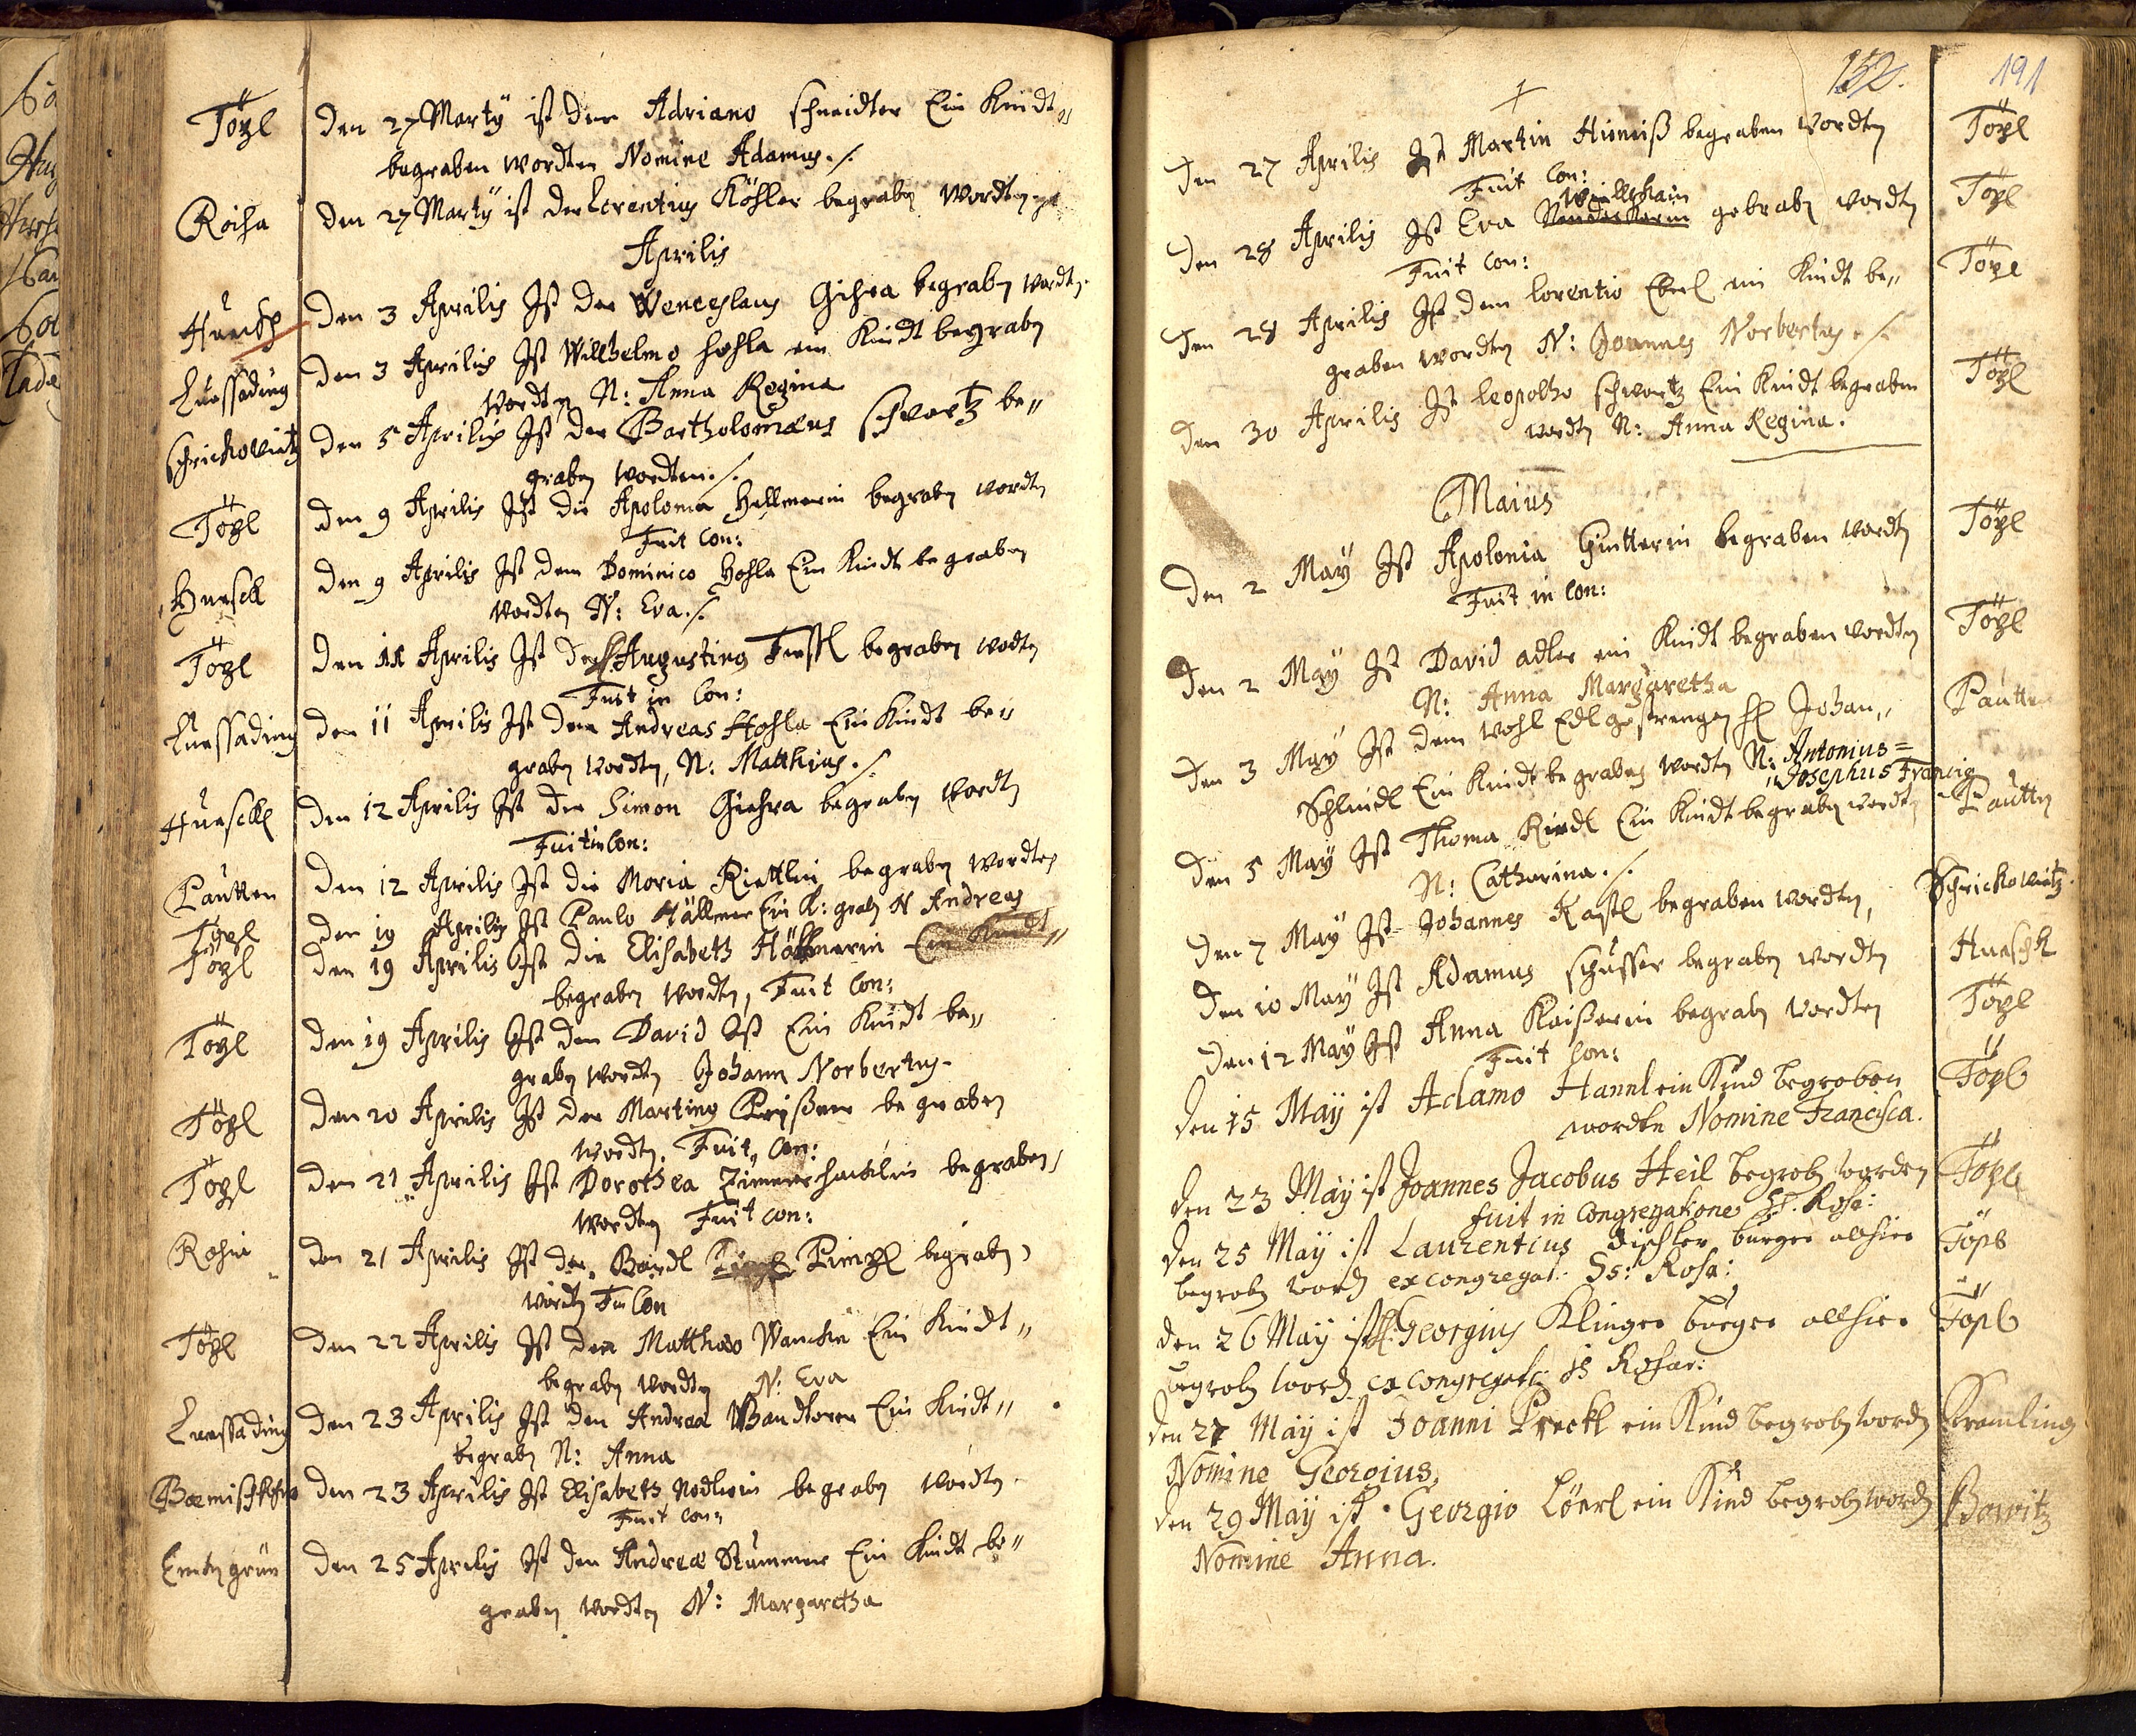 Töpl den 27 Marty ist dem Adriano schneidter Ein Kindt
begraben wordten Nomine Adamus ./.
Roiha den 27 Marty ist der Lorentius Köhler begraben wordten
Aprilis
den 3 Aprilis Ist der Wenceslaus Gihra begraben wordten
Kuessading den 3 Aprilis Ist Wilhelmo Hohla ein Kindt begraben
wordten N: Anna Regina
Schrickowitz den 5 Aprilis Ist der Bartholomæus Schwartz be„
graben wordten ./.
Töpl den 9 Aprilis Ist die Apolonia Hellmerin begraben wordten
Fuit Con:
Huschk den 9 Aprilis Ist dem Dominico Hohla Ein Kindt begraben
wordten N: Eva ./.
Töpl den 11 Aprilis Ist der Augustinus begraben wordten
Fuit in Con:
Kuessading den 11 Aprilis Ist dem Andreas Hohla Ein Kindt be„
graben wordten, N: Matthias ./.
Hueschk den 12 Aprilis Ist der Simon Giehra begraben wordten
Fuit in Con:
Pautten den 12 Aprilis Ist die Maria Riedtlin begraben wordten
Töpl den 19 Aprilis Ist Paulo Hällmer Ein K: grab N Andreas
Töpl den 19 Aprilis Ist die Elisabeth Ein Kindt„
begraben wordten, Fuit Con:
Töpl den 19 Aprilis Ist dem David Ein Kindt be„
graben wordten Johann Norbertus
Töpl den 20 Aprilis Ist der Martinus begraben
wordten. Fuit Con:
Töpl den 21 Aprilis Ist Dorothea Zimmerhacklin begraben
wordten Fuit Con:
den 21 Aprilis Ist der Pimpl begraben
wordten Fu Con
Töpl den 22 Aprilis Ist dem Mattheo Wanka Ein Kindt„
begraben wordten N: Eva
Kuessading den 23 Aprilis Ist dem Andrea Ein Kindt„
begraben N: Anna
den 23 Aprilis Ist Elisabeth begraben wordten
Fuit Con:
den 25 Aprilis Ist dem Andreæ Stummer Ein Kindt be„
graben wordten N: Margaretha
152. 191
den 27 Aprilis Ist Martin begraben wordten Töpl
Fuit Con:
den 28 Aprilis Ist Eva gebraben wordten Töpl
Fuit Con:
den 28 Aprilis Ist dem Lorentio Eberl ein Kindt be„ Töpl
graben wordten N: Joannes Norbertus ./.
den 30 Aprilis Ist Leopoldo Schwartz Ein Kindt begraben Töpl
wordten N: Anna Regina.
Maius
den 2 May Ist Apolonia begraben wordten Töpl
Fuit in Con:
den 2 May Ist David adler ein Kindt begraben wordten Töpl
N: Anna Margaretha
den 3 May Ist dem wohl Edlgestrengen H Johan„ Pautten
Schluidl Ein Kindt begraben wordten N: Antonius=
„Josephus Francis
den 5 May Ist Thoma Riedl Ein Kindt begraben wordten Pautten
N: Catharina ./.
den 7 May Ist Johannes Kastl begraben wordten, Schrickowitz.
den 10 May Ist Adamus Schusser begraben wordten Hueschk
den 12 May Ist Anna Kaißerin begraben wordten Töpl
Fuit Con:
den 15 May ist Adamo Hannl ein Kind begraben Töpl
wordten Nomine Francisca.
den 23 May ist Joannes Jacobus Heil begraben worden Töpl
fuit in Congregatione SS. Rosa:
den 25 May ist Laurentius Tischler burger allhier Töpl
begraben word. ex congregat: Ss: Rosa:
den 26 May ist H. Georgius Klinger burger allhier Töpl
begraben word. ex congregat: ss Rosar:
den 27 May ist Joanni Preckl ein Kind begraben worden Kramling
Nomine Georgius.
den 29 May ist Georgio Löerl ein Kind begraben worden
Nomine Anna.